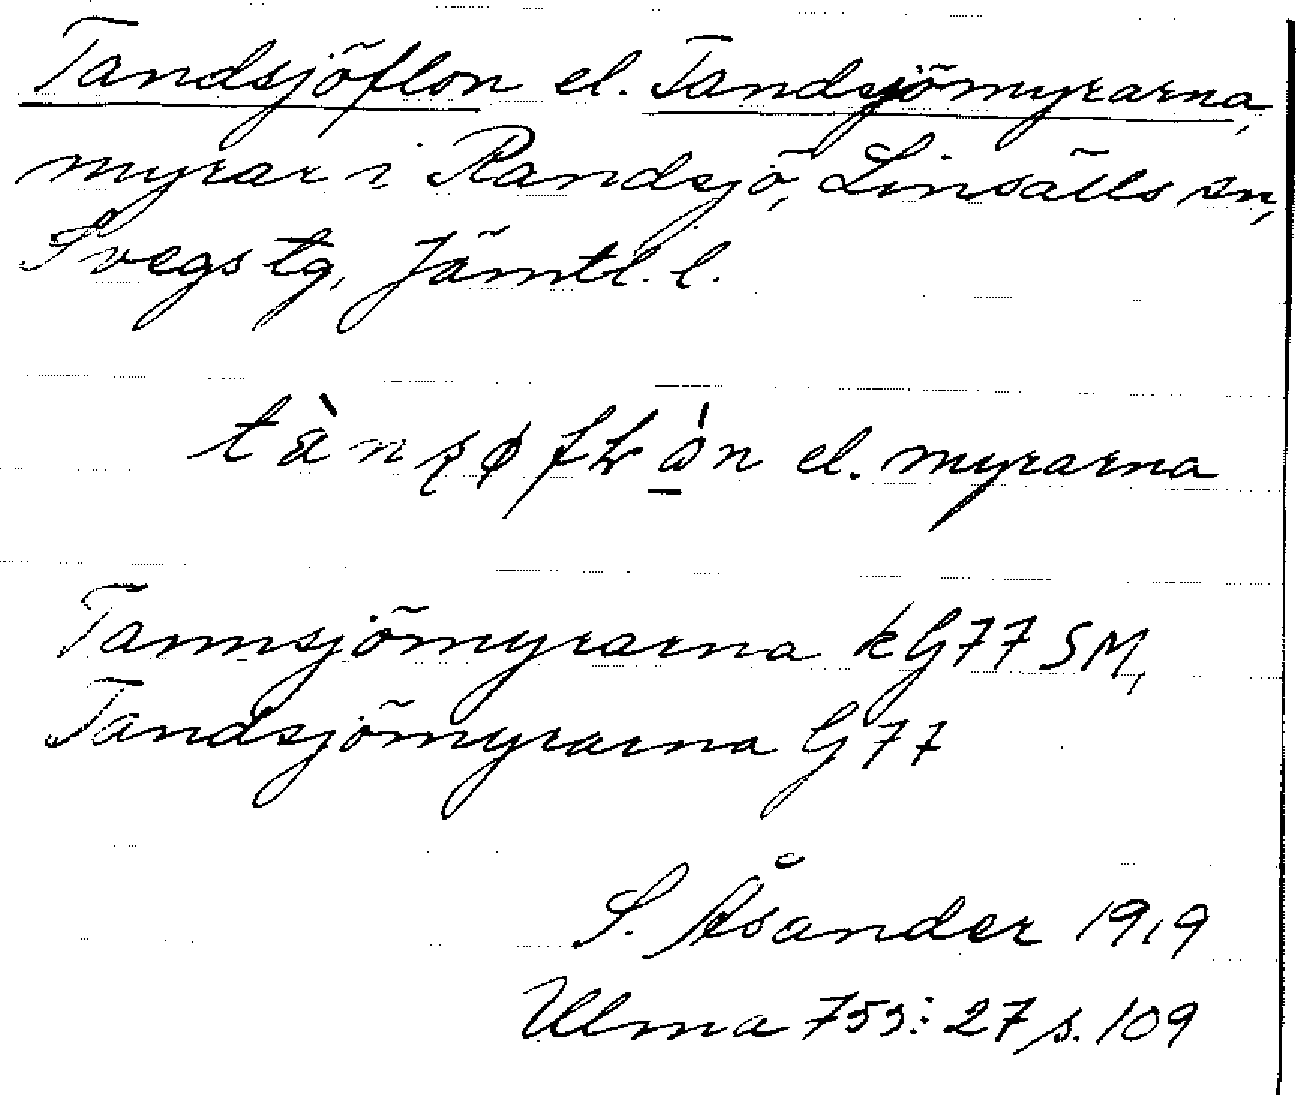 Tandsjöflon el. Tandsjömyrarna,
myrar i Randsjö, Linsälls sn,
Svegs tg, Jämtl. l.
el. myrarna
Tannsjömyrarna kG77 SM,
Tandsjömyrarna G77
S. Åsander 1919
Ulma 753:27 s. 109